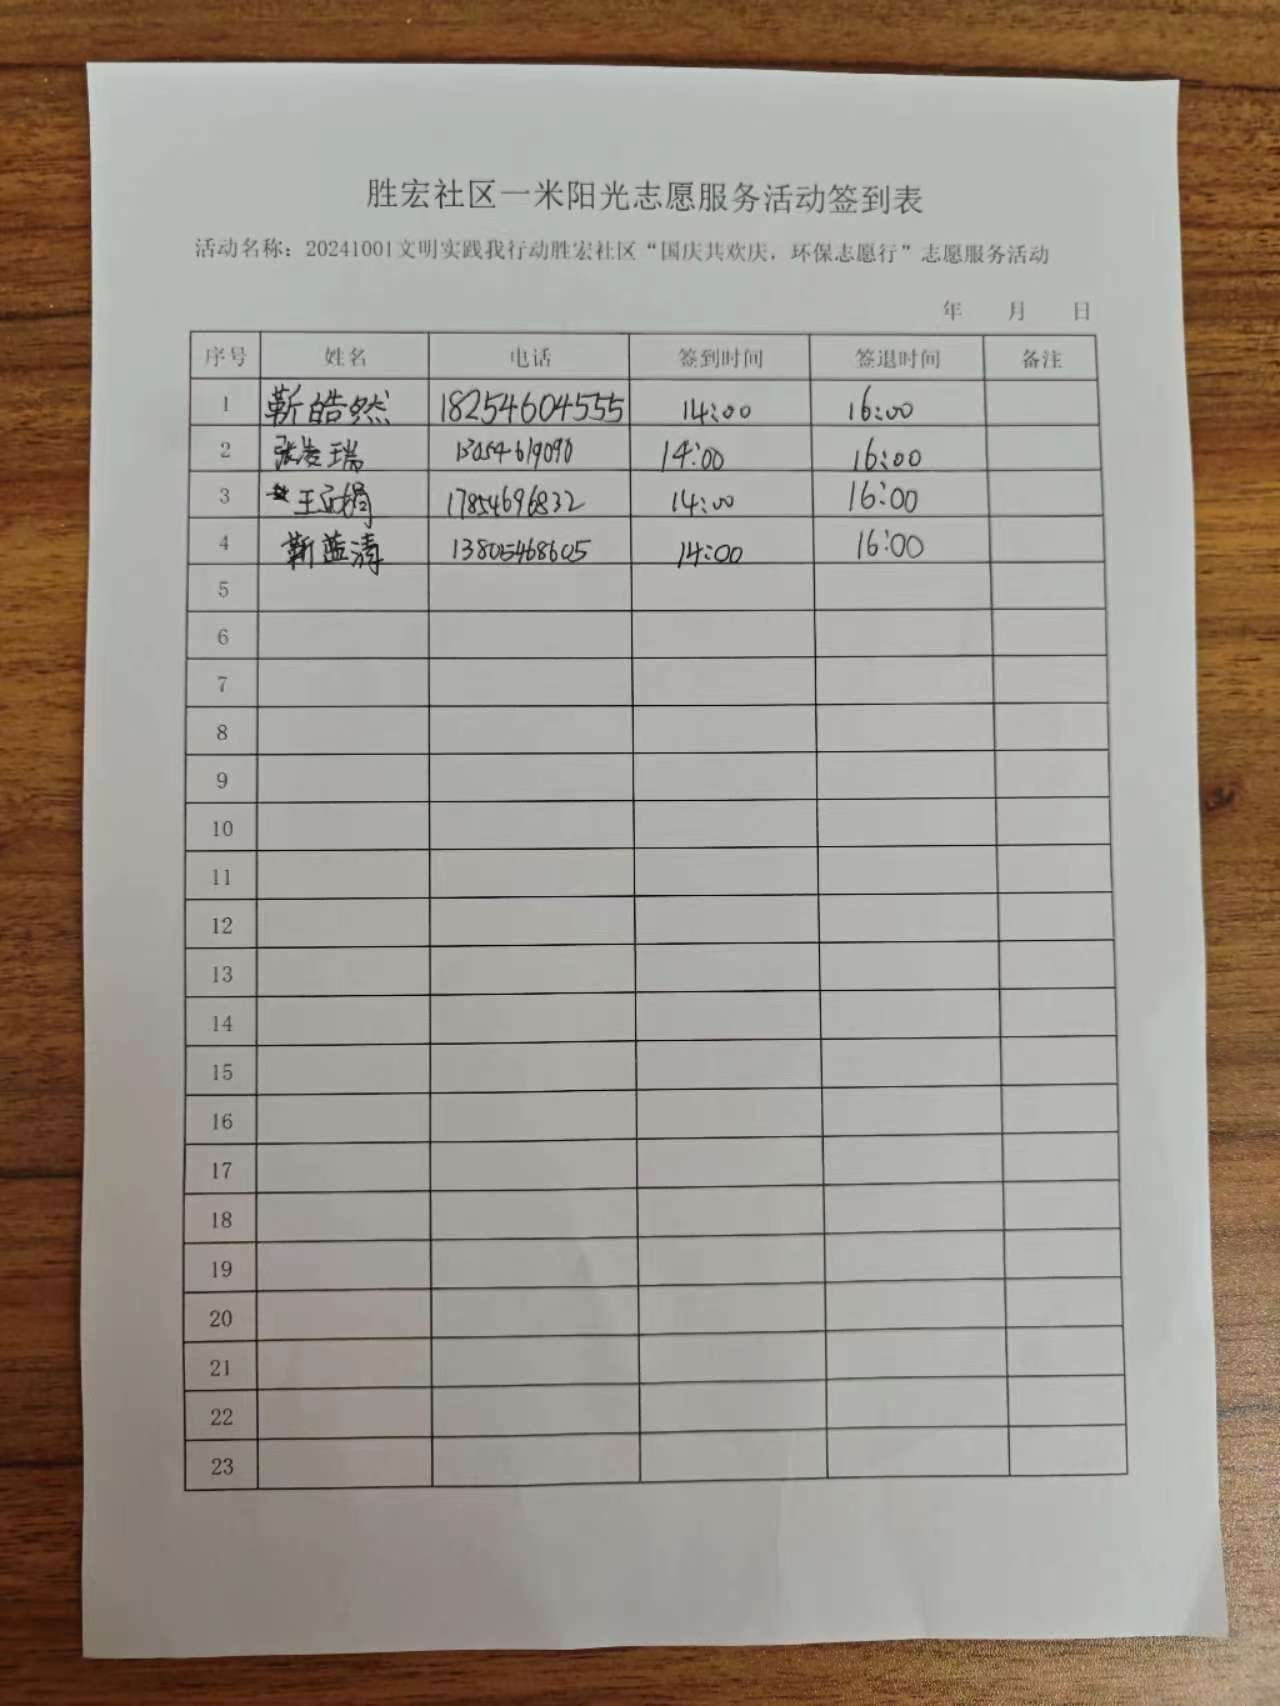 胜宏社区一米阳光志愿服务活动签到表
活动名称：20241001文明实践我行动胜宏社区“国庆共欢庆，环保志愿行”志愿服务活动
年 月 日
序号 姓名 电话 签到时间 签退时间 备注
1 靳皓然 18254604555 14:00 16:00
2 张凌瑞 13054619090 14:00 16:00
3 王 17854696832 14:00 16:00
4 靳蓝清 13805468605 14:00 16:00
5
6
7
8
9
10
11
12
13
14
15
16
17
18
19
20
21
22
23